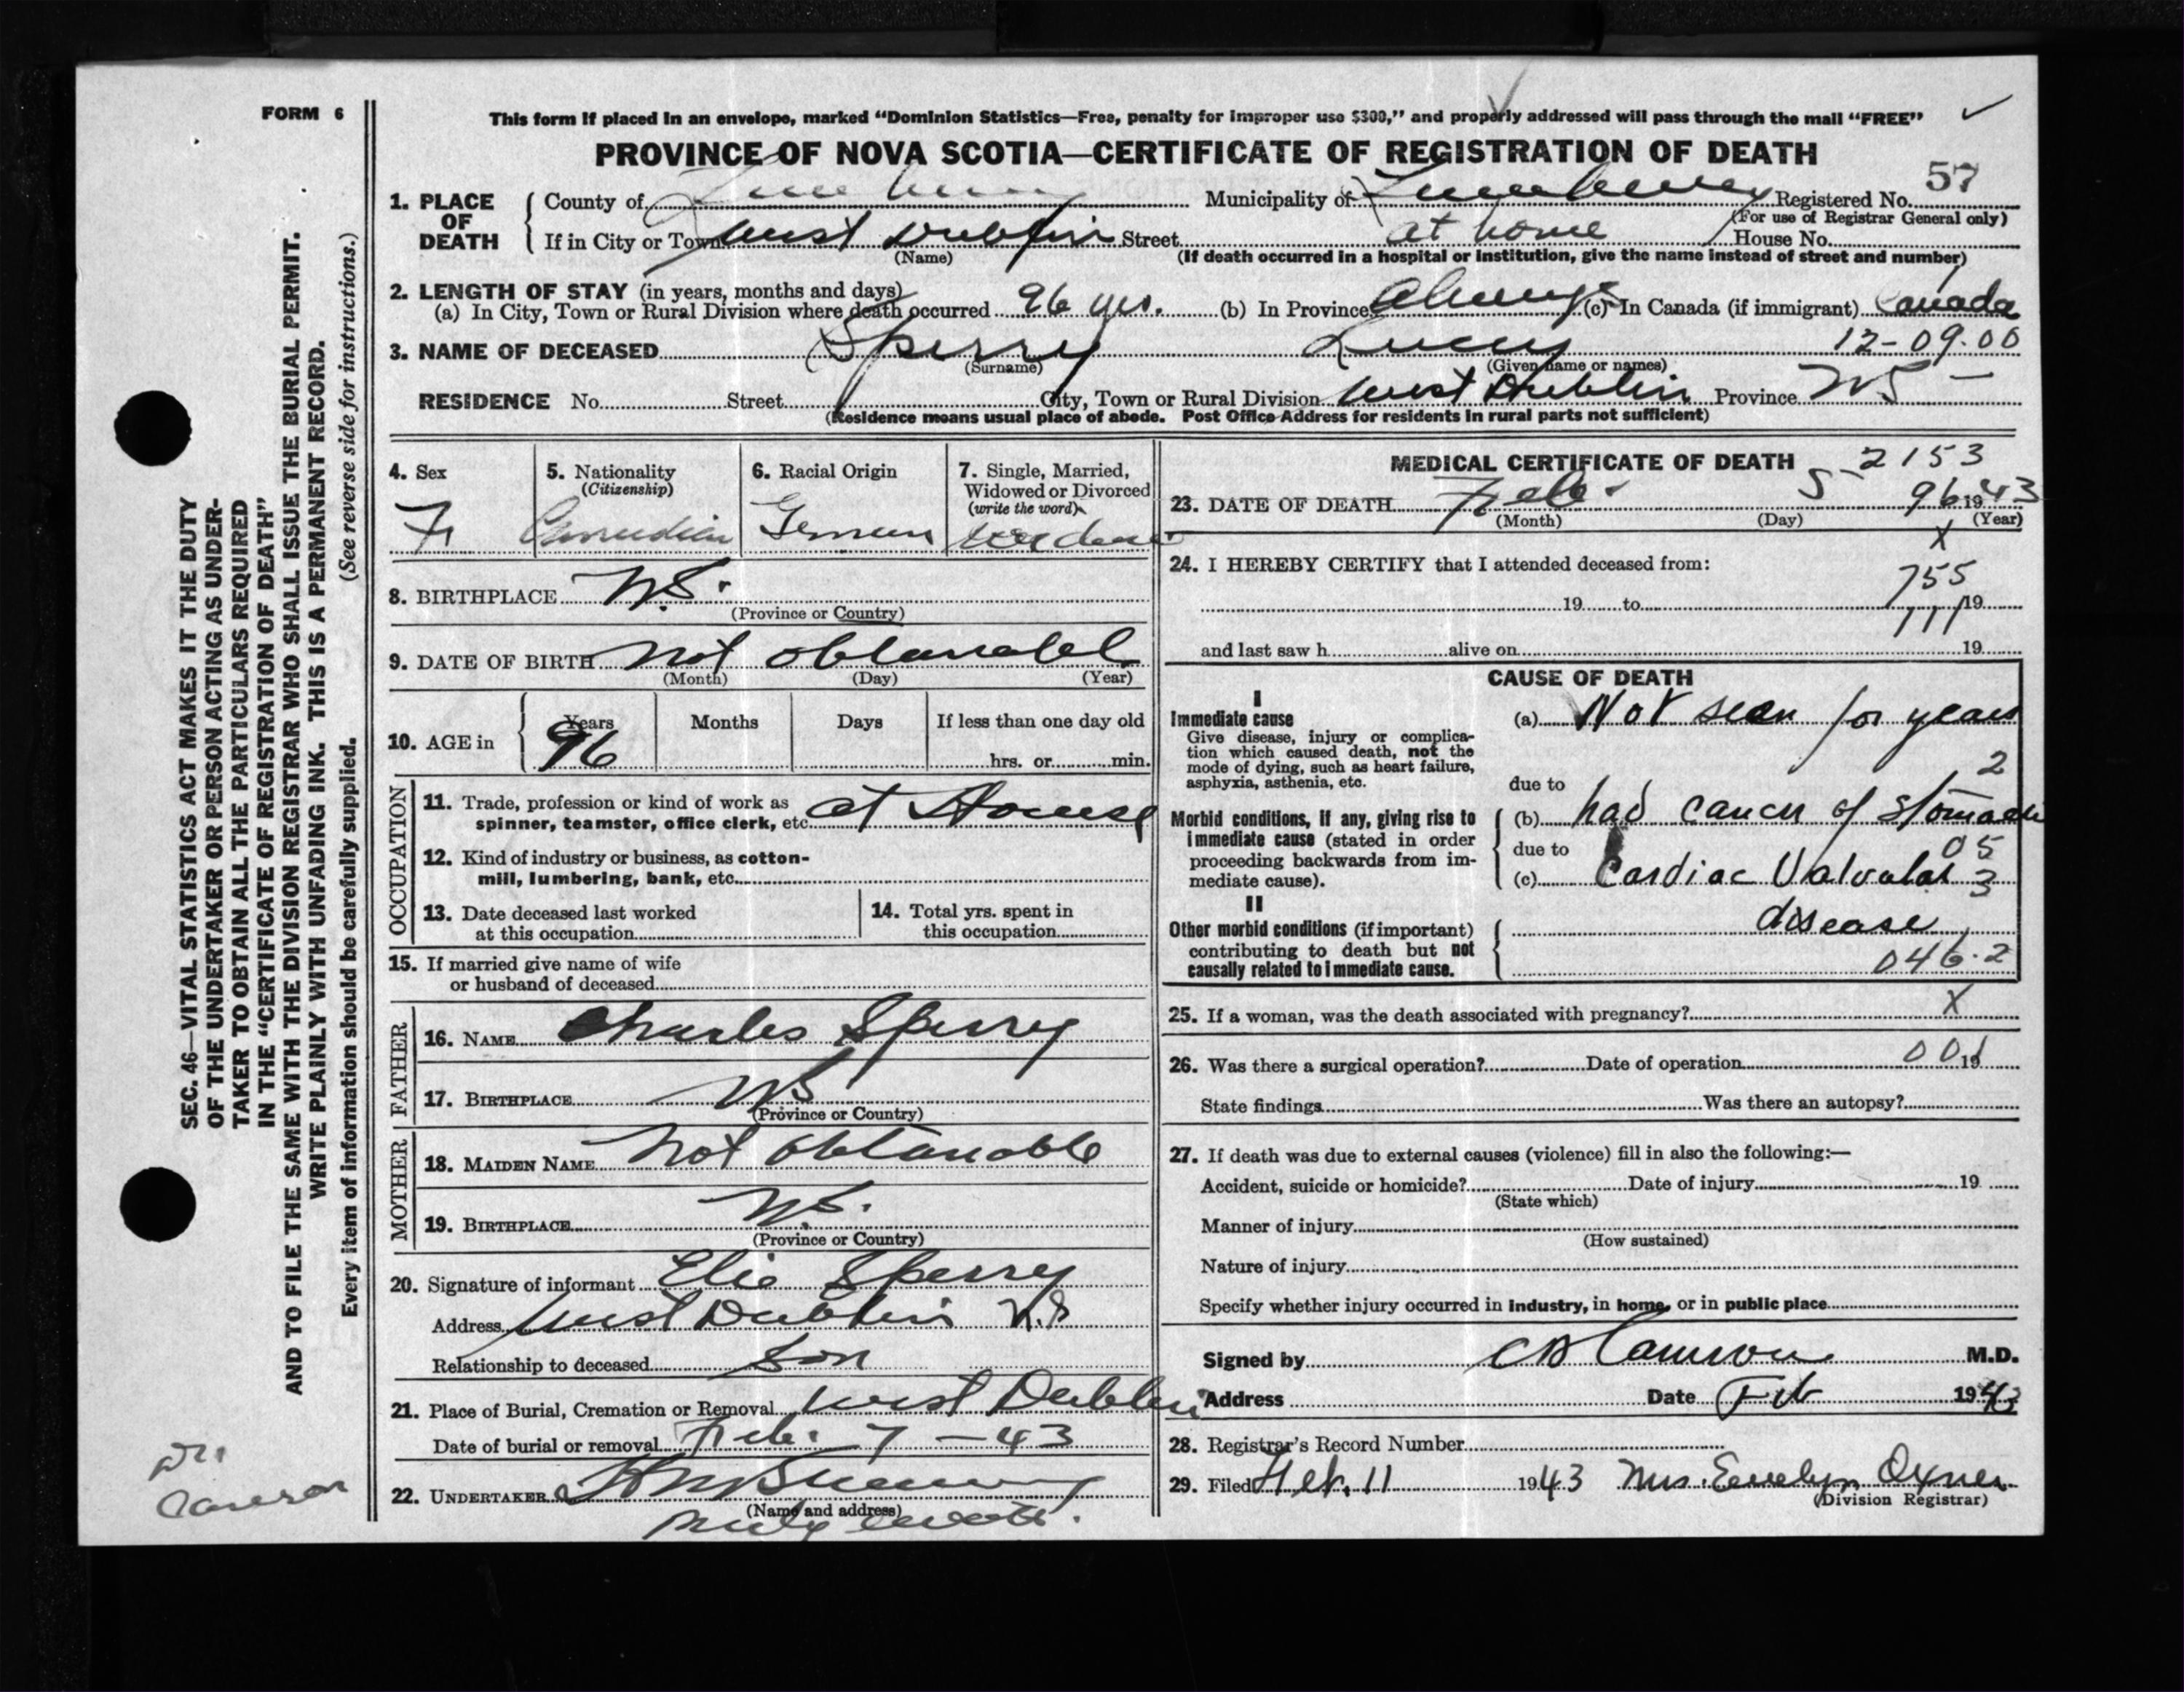 FORM 6
This form if placed in an envelope, marked "Dominion Statistics—Free, penalty for improper use $300," and properly addressed will pass through the mail "FREE"
PROVINCE OF NOVA SCOTIA—CERTIFICATE OF REGISTRATION OF DEATH
57
1. PLACE OF DEATH
County of Lunenburg Municipality of Lunenburg Registered No.
(For use of Registrar General only)
If in City or Town West Dublin Street at home House No.
(Name)
(If death occurred in a hospital or institution, give the name instead of street and number)
2. LENGTH OF STAY (in years, months and days)
(a) In City, Town or Rural Division where death occurred 96 yrs. (b) In Province Always (c) In Canada (if immigrant) Canada
12-09-00
3. NAME OF DECEASED Sperry Lucy
(Surname) (Given name or names)
RESIDENCE No. Street City, Town or Rural Division West Dublin Province NS —
(Residence means usual place of abode. Post Office Address for residents in rural parts not sufficient)
4. Sex
F
5. Nationality
(Citizenship)
Canadian
6. Racial Origin
German
7. Single, Married,
Widowed or Divorced
(write the word)
8. BIRTHPLACE N.S.
(Province or Country)
9. DATE OF BIRTH not obtanabel
(Month) (Day) (Year)
10. AGE in
Years Months Days If less than one day old
96 hrs. or min.
OCCUPATION
11. Trade, profession or kind of work as
spinner, teamster, office clerk, etc. at House
12. Kind of industry or business, as cotton-
mill, lumbering, bank, etc.
13. Date deceased last worked
at this occupation
14. Total yrs. spent in
this occupation
15. If married give name of wife
or husband of deceased
FATHER
16. NAME Charles Sperry
17. BIRTHPLACE NS
(Province or Country)
MOTHER
18. MAIDEN NAME not obtanable
19. BIRTHPLACE N.S.
(Province or Country)
20. Signature of informant Elie Sperry
Address West Dublin N.S
Relationship to deceased Son
21. Place of Burial, Cremation or Removal West Dublin
Date of burial or removal Feb. 7 - 43
22. UNDERTAKER
(Name and address)
MEDICAL CERTIFICATE OF DEATH
2153
23. DATE OF DEATH Feb. 5 96 1943
(Month) (Day) (Year)
X
24. I HEREBY CERTIFY that I attended deceased from:
755
19 to 19
111
and last saw h alive on 19
CAUSE OF DEATH
I
Immediate cause
Give disease, injury or complica-
tion which caused death, not the
mode of dying, such as heart failure,
asphyxia, asthenia, etc.
(a) Not seen for years
2
due to
Morbid conditions, if any, giving rise to
immediate cause (stated in order
proceeding backwards from im-
mediate cause).
(b) had cancer of stomach
due to
05
(c) Cardiac Valvular 3
II
Other morbid conditions (if important)
contributing to death but not
causally related to immediate cause.
disease
046.2
25. If a woman, was the death associated with pregnancy? X
26. Was there a surgical operation? Date of operation 001 19
State findings Was there an autopsy?
27. If death was due to external causes (violence) fill in also the following:—
Accident, suicide or homicide? Date of injury 19
(State which)
Manner of injury
(How sustained)
Nature of injury
Specify whether injury occurred in industry, in home, or in public place
Signed by Cameron M.D.
Address Date Feb 1943
28. Registrar's Record Number
29. Filed Feb. 11 1943 Mrs. Evelyn Oxner
(Division Registrar)
SEC. 46—VITAL STATISTICS ACT MAKES IT THE DUTY
OF THE UNDERTAKER OR PERSON ACTING AS UNDER-
TAKER TO OBTAIN ALL THE PARTICULARS REQUIRED
IN THE "CERTIFICATE OF REGISTRATION OF DEATH"
AND TO FILE THE SAME WITH THE DIVISION REGISTRAR WHO SHALL ISSUE THE BURIAL PERMIT.
WRITE PLAINLY WITH UNFADING INK. THIS IS A PERMANENT RECORD.
Every item of information should be carefully supplied. (See reverse side for instructions.)
Dr
Cameron